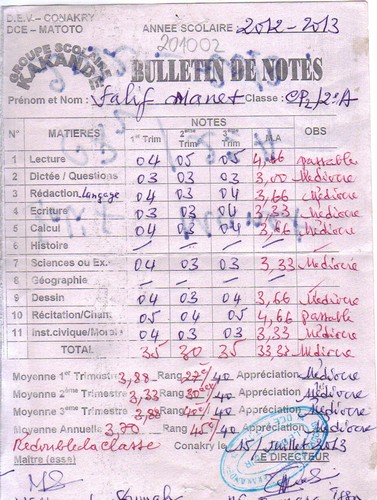 D.E.V - CONAKRY
DCE - MATOTO
ANNEE SCOLAIRE : 2012 - 2013
201002
GROUPE SCOLAIRE
KAKANDE
BULLETIN DE NOTES
Prénom et Nom : Salif Manet Classe : CP2/2e A
N° MATIERES NOTES OBS
1er Trim 2ème Trim 3ème Trim M.A
1 Lecture 04 05 05 4,66 passable
2 Dictée / Questions 03 03 03 3,00 Médiocre
3 Rédaction Langage 04 03 04 3,66 Médiocre
4 Ecriture 03 03 04 3,33 Médiocre
5 Calcul 04 03 04 3,66 Médiocre
6 Histoire
7 Sciences ou Ex. 04 03 03 3,33 Médiocre
8 Géographie
9 Dessin 04 03 04 3,66 Médiocre
10 Récitation/Chant 05 04 05 4,66 Passable
11 Inst.civique/Morale 04 03 03 3,33 Médiocre
TOTAL 35 30 35 33,33 Médiocre
Moyenne 1er Trimestre 3,88 Rang 27e/40 Appréciation Médiocre
Moyenne 2ème Trimestre 3,33 Rang /40 Appréciation Médiocre
Moyenne 3ème Trimestre 3,88 Rang /40 Appréciation Médiocre
Moyenne Annuelle 3,70 Rang /40 Appréciation Médiocre
Redouble la classe Conakry le 15 Juillet 2013
Maître (esse) LE DIRECTEUR